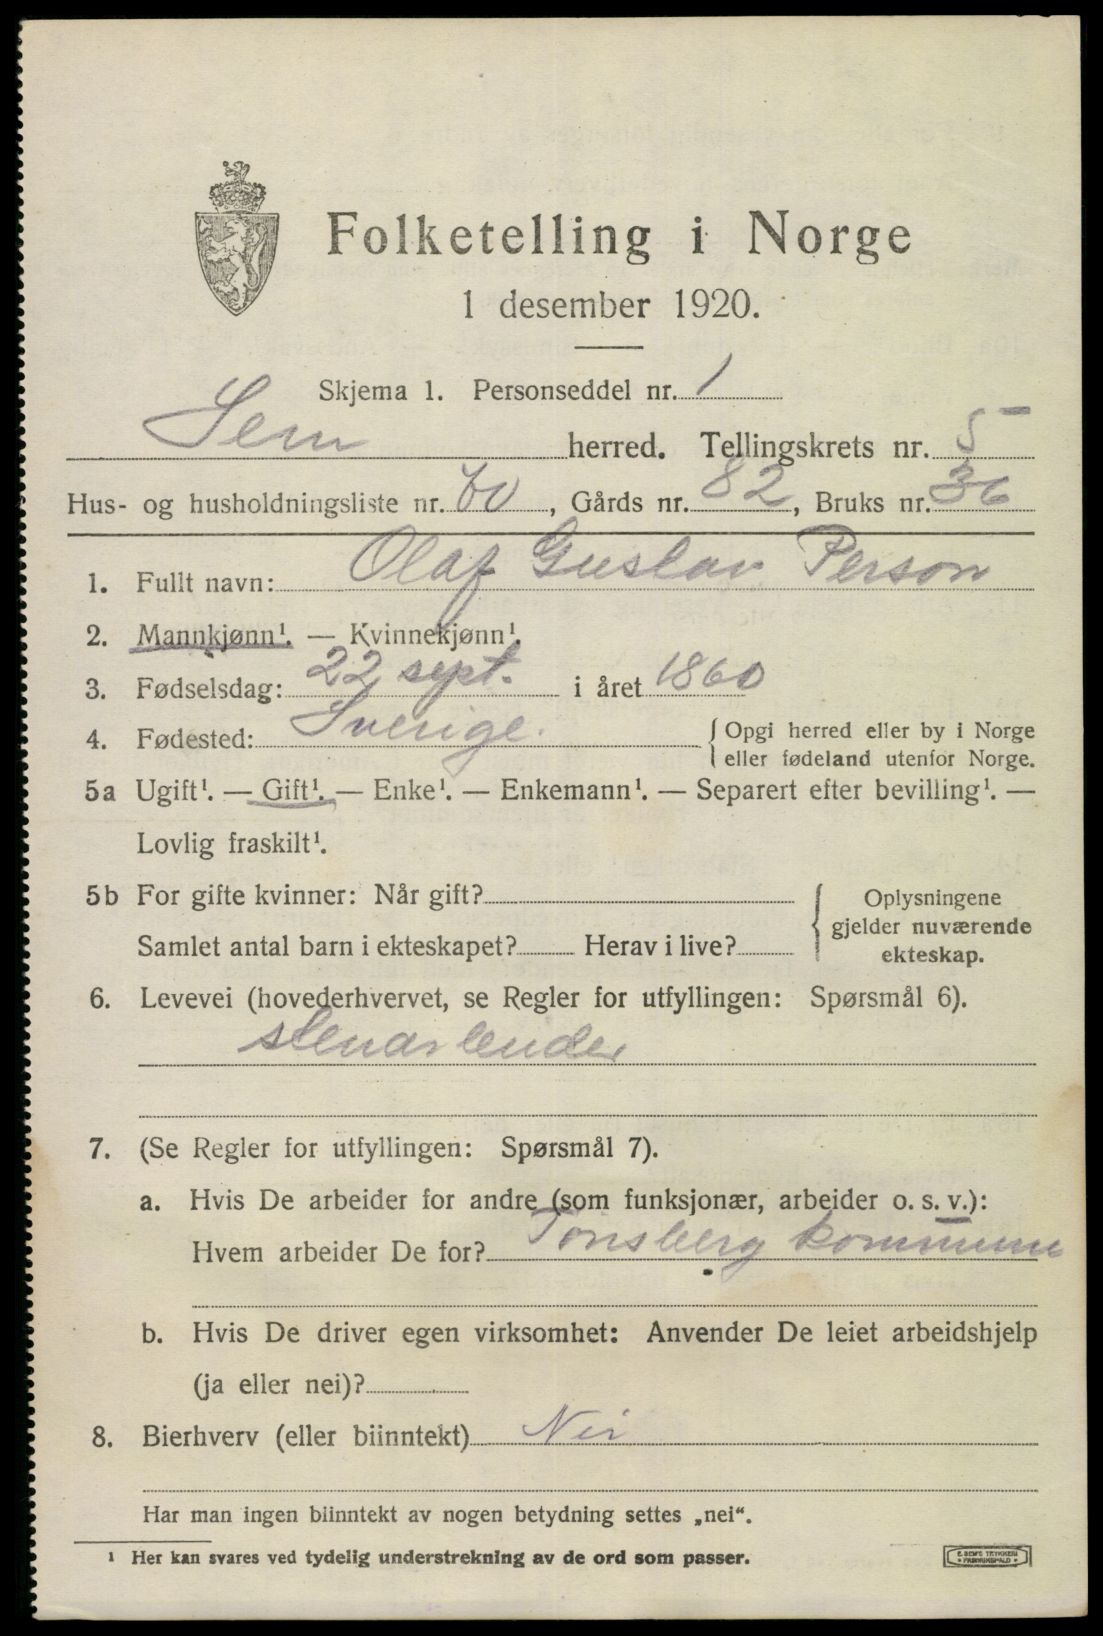 Folketelling i Norge
1 desember 1920.
Skjema 1. Personseddel nr. 1
Sem herred. Tellingskrets nr. 5
Hus- og husholdningsliste nr. 70, Gårds nr. 82, Bruks nr. 36
1. Fullt navn: Olaf Gustav Person
2. Mannkjønn¹. — Kvinnekjønn¹.
3. Fødselsdag: 22 sept. i året 1860
4. Fødested: Sverige. { Opgi herred eller by i Norge
eller fødeland utenfor Norge.
5a Ugift¹. — Gift¹. — Enke¹. — Enkemann¹. — Separert efter bevilling¹. —
Lovlig fraskilt¹.
5b For gifte kvinner: Når gift?
Samlet antal barn i ekteskapet? Herav i live?
{ Oplysningene
gjelder nuværende
ekteskap.
6. Levevei (hovederhvervet, se Regler for utfyllingen: Spørsmål 6).
stenarbeider
7. (Se Regler for utfyllingen: Spørsmål 7).
a. Hvis De arbeider for andre (som funksjonær, arbeider o. s. v.):
Hvem arbeider De for? Tønsberg kommune
b. Hvis De driver egen virksomhet: Anvender De leiet arbeidshjelp
(ja eller nei)?
8. Bierhverv (eller biinntekt) Nei
Har man ingen biinntekt av nogen betydning settes „nei“.
¹ Her kan svares ved tydelig understrekning av de ord som passer.